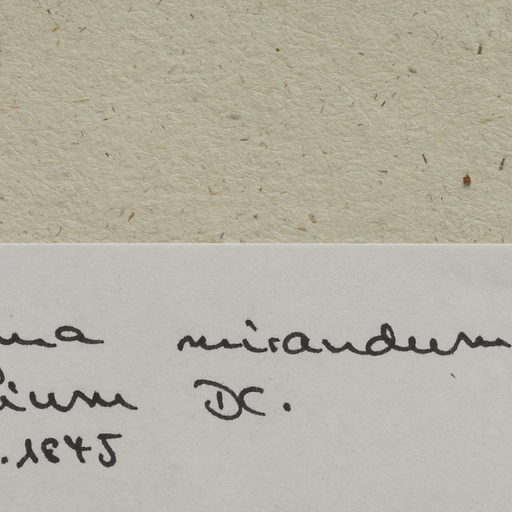 na mirandum
ium DC.
.1845